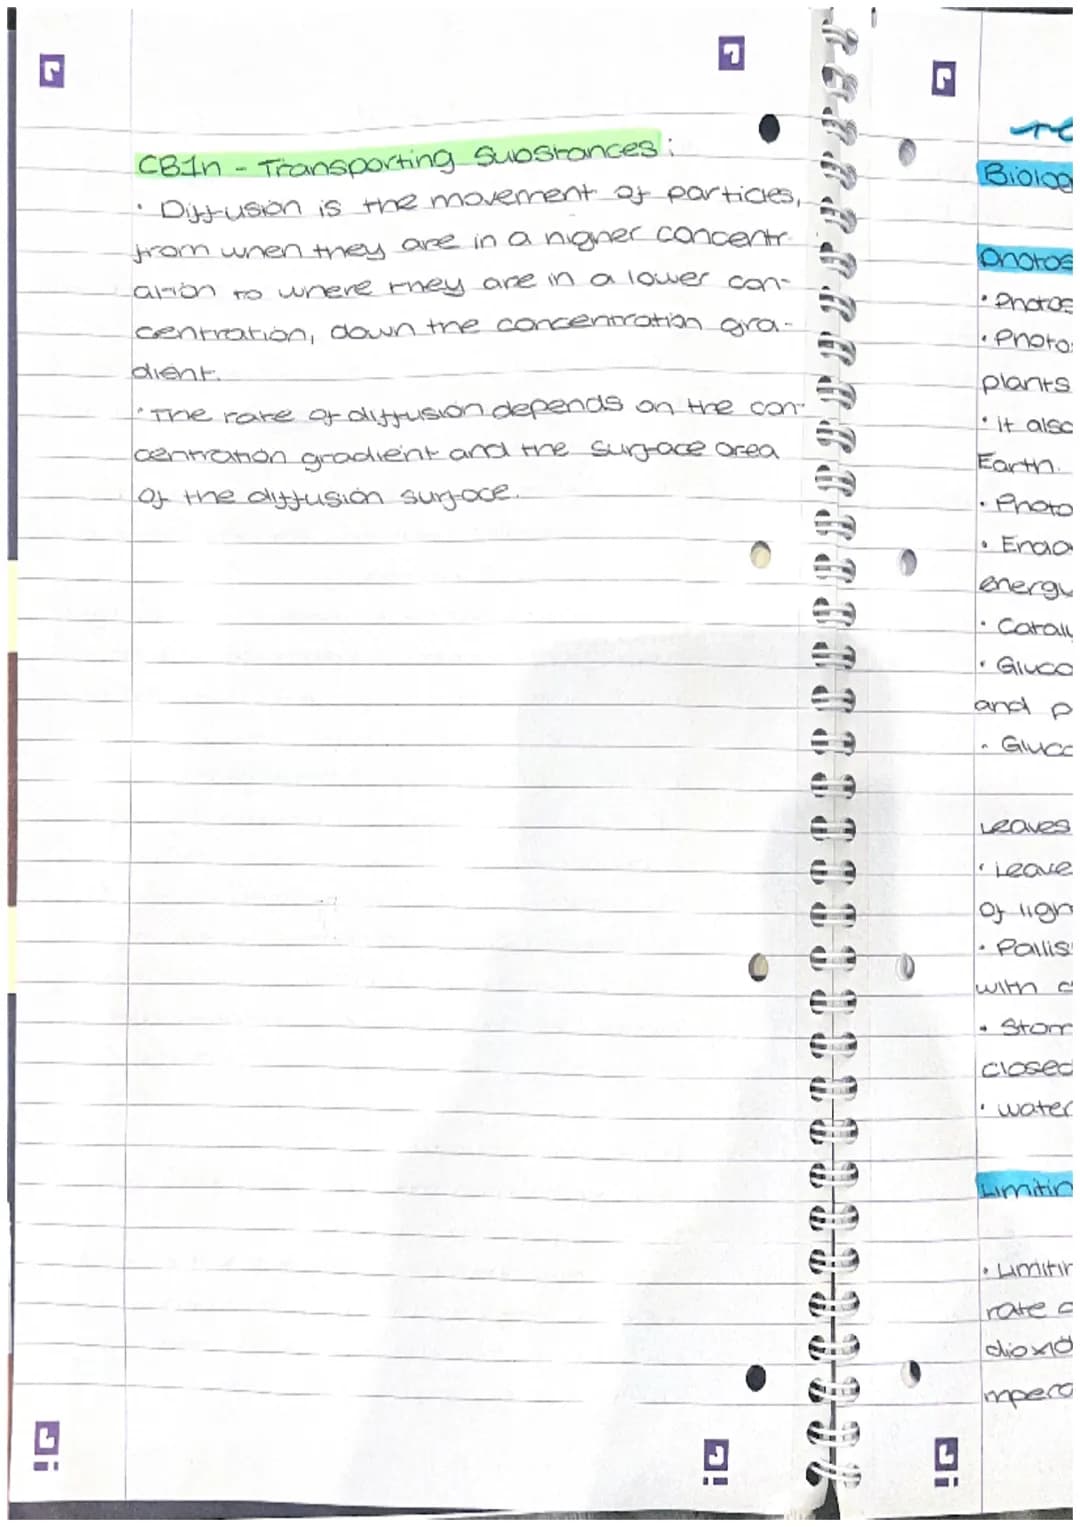 CB1h - Transporting Substances:
• Diffusion is the movement of particles,
from when they are in a higher concentr-
ation to where they are in a lower con-
centration, down the concentration gra-
dient.
• The rate of diffusion depends on the con-
centration gradient and the surface area
of the diffusion surface.
Biolog
Photos
• Photos
• Photos
plants
• it also
Earth.
• Photo
• Endo
energy
• Cataly
• Gluco
and p
• Gluco
Leaves
• Leave
of ligh
• Pallis
with c
• Stom
closed
• water
Limitin
• Limitin
rate o
dioxid
mpera